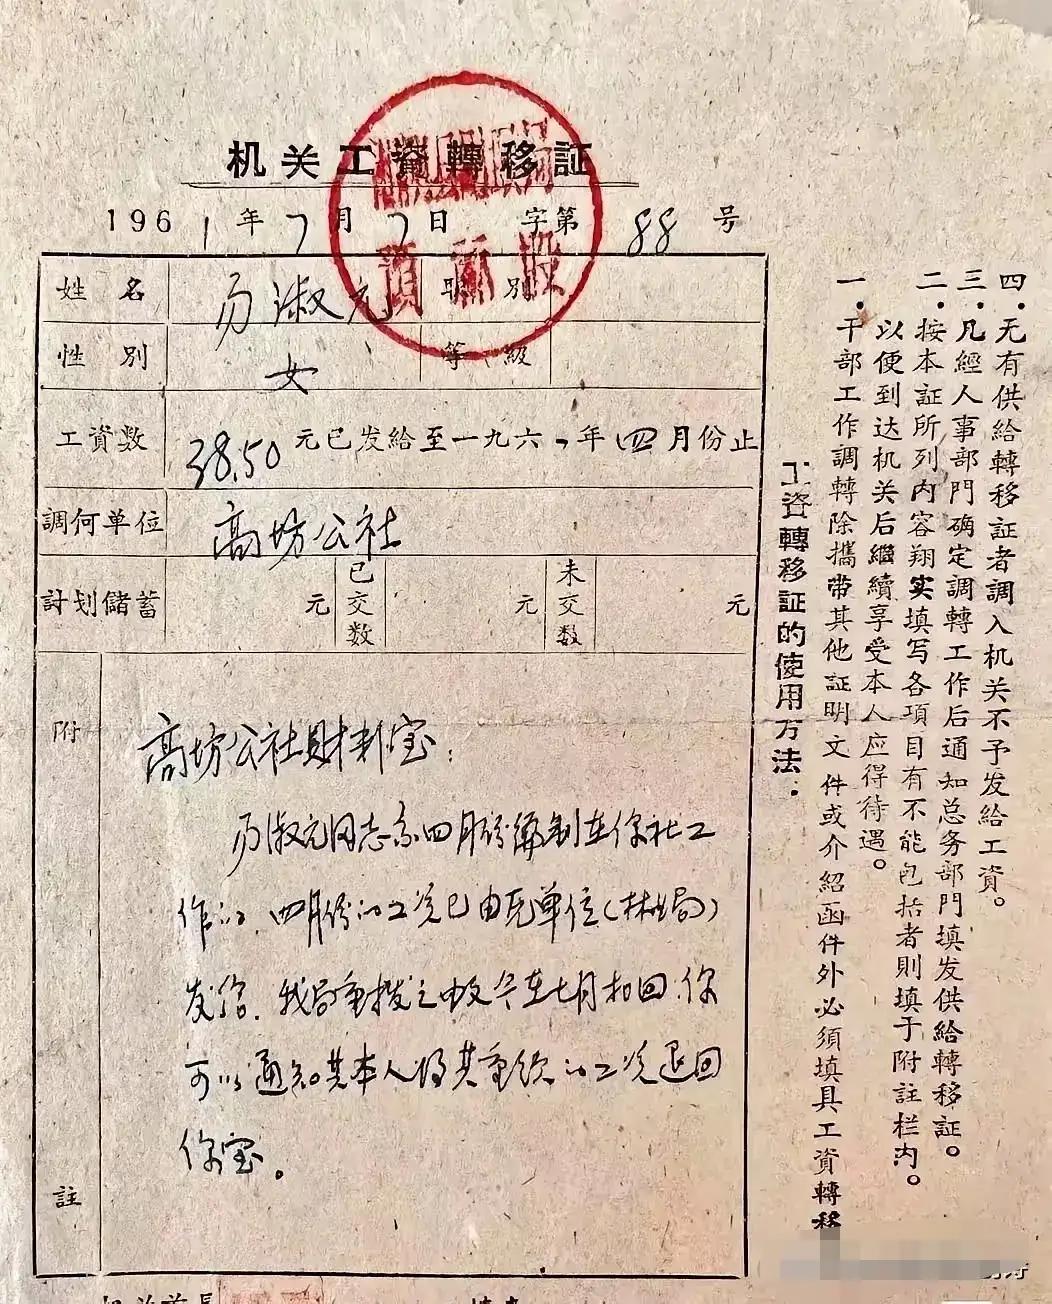 机关工資轉移証
1961年7月7日 字第88号
姓名 历淑元 职別
性別 女 等級
工資数 38.50元已发給至一九六一年四月份止
調何单位 高坊公社
計划儲蓄 元 已交数 元 未交数 元
附註
高坊公社財料室：
历淑元同志系四月份编制在你社工
作的，四月份的工资已由元单位（林业局）
发给，我局重拨之由
至七月扣回，你
可以通知其本人将其重领的工资退回
你室。
預算股
工資轉移証的使用方法：
一．干部工作調轉除攜带其他証明文件或介紹函件外必須填具工資轉移
以便到达机关后繼續享受本人应得待遇。
二．按本証所列内容翔实填写各項目有不能包括者則填于附註栏内。
三．凡經人事部門确定調轉工作后通知总务部門填发供給轉移証。
四．无有供給轉移証者調入机关不予发給工資。